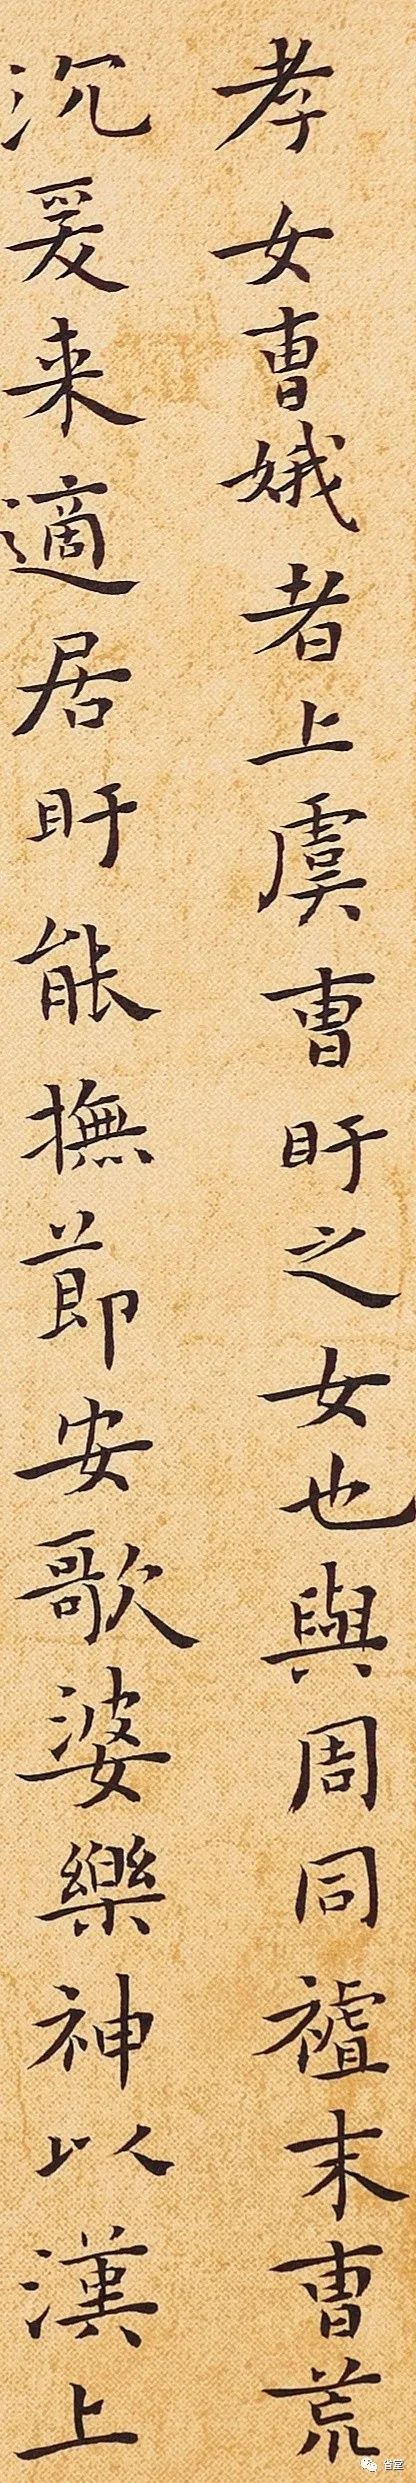 孝女曹娥者上虞曹盱之女也與周同祖末胄荒
沉爰来適居盱能撫節安歌婆樂神以漢上